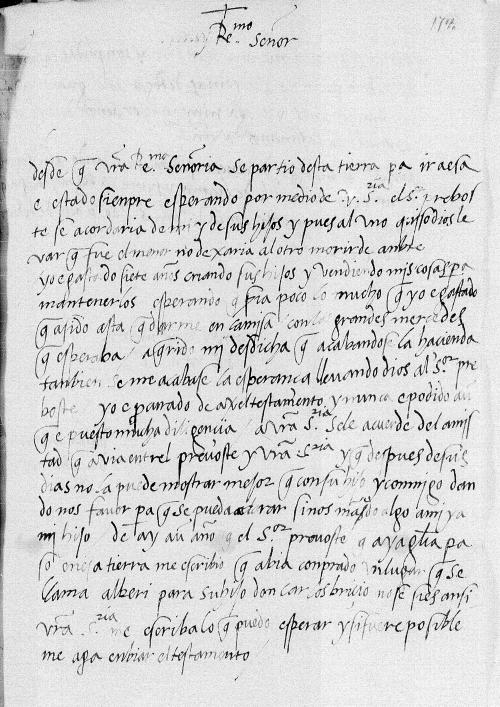 Rmo Señor
desde q vra Rma Señoria se partio desta tierra pa ir a esa
e estado sienpre esperando por medio de v. Sria el Sor prebos
te se acordaria de mi y de sus hijos y pues al uno quiso dios le
var q fue el menor no dexaria al otro morir de anbre
yo e gastado siete años criando sus hijos y vendiendo mis cosas pa
mantenerlos esperando q pa poco lo mucho q yo e gastado
q asido asta qdarme en camisa con las grandes mercedes
q esperaba a qrido mi desdicha q acabandose la hacienda
tanbien se me acabase la esperança llevando dios al Sor pre
boste yo e parado de a el testamento y nunca e podido aun
q e puesto mucha diligencia a vra Sria se le acuerde del amis
tad q avia entrel prevoste y vra Sria y q despues de sus
dias no la puede mostrar mejor q con su hijo y conmigo dan
do nos favor pa q se pueda cobrar si nos mando algo a mi y a
mi hijo de ay a un año q el Sor prevoste q aya glia pa
so en esa tierra me escribio q abia conprado un lugar q se
llama alberi para su hijo don carlos bricio no se si es ansi
vra Sria me escriba lo q puedo esperar y si fuere posible
me aga enbiar el testamento